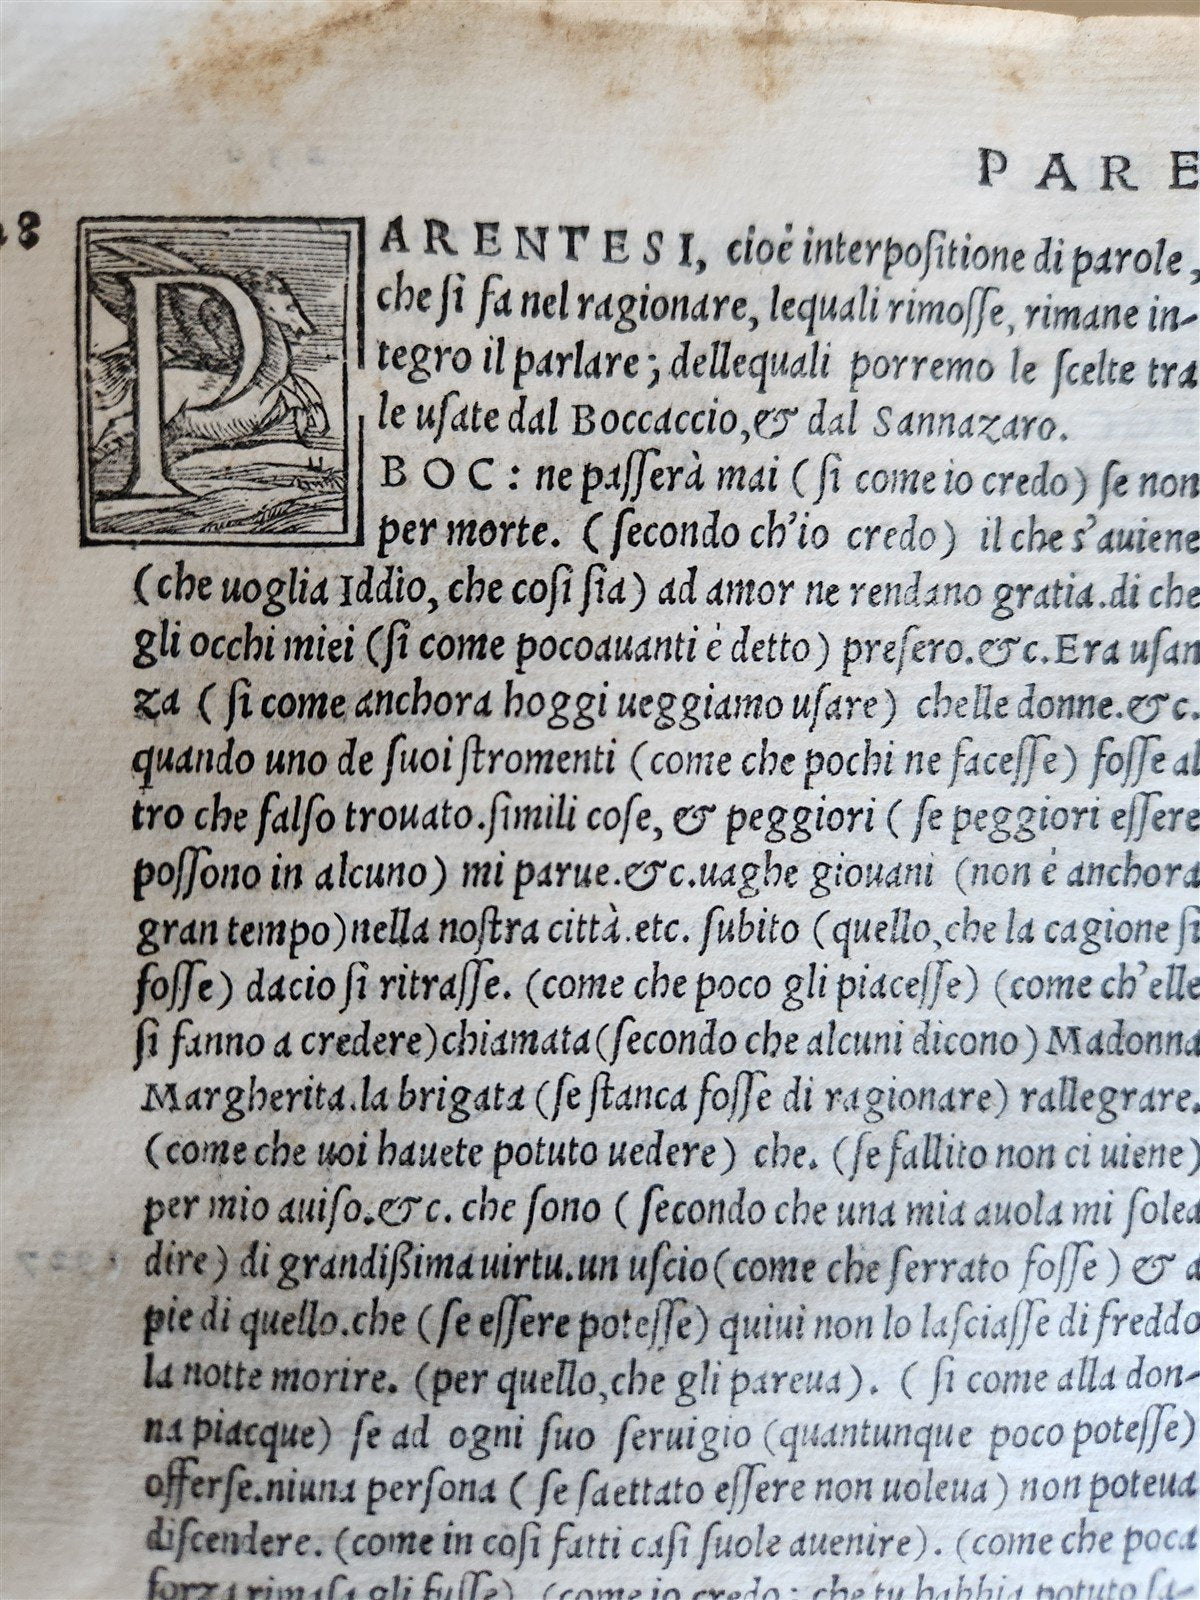 PARE
28
PARENTESI, cioè interpoſitione di parole,
che ſi fa nel ragionare, lequali rimoſſe, rimane in-
tegro il parlare; dellequali porremo le ſcelte tra
le uſate dal Boccaccio, & dal Sannazaro.
BOC: ne paſſerà mai (ſi come io credo) ſe non
per morte. (ſecondo ch'io credo) il che s'auiene
(che uoglia Iddio, che coſi ſia) ad amor ne rendano gratia.di che
gli occhi miei (ſi come pocoauanti è detto) preſero.&c.Era uſan
za (ſi come anchora hoggi ueggiamo uſare) chelle donne.&c.
quando uno de ſuoi ſtromenti (come che pochi ne faceſſe) foſſe al
tro che falſo trouato.ſimili coſe, & peggiori (ſe peggiori eſſere
poſſono in alcuno) mi parue.&c.uaghe giouani (non è anchora
gran tempo)nella noſtra città.etc. ſubito (quello,che la cagione ſi
foſſe) dacio ſi ritraſſe. (come che poco gli piaceſſe) (come ch'elle
ſi fanno a credere)chiamata(ſecondo che alcuni dicono)Madonna
Margherita.la brigata (ſe ſtanca foſſe di ragionare) rallegrare.
(come che uoi hauete potuto uedere) che. (ſe fallito non ci uiene)
per mio auiſo.&c. che ſono (ſecondo che una mia auola mi ſolea
dire) di grandißima uirtu.un uſcio(come che ferrato foſſe) & a
pie di quello.che (ſe eſſere poteſſe) quiui non lo laſciaſſe di freddo
la notte morire. (per quello,che gli pareua). (ſi come alla don-
na piacque) ſe ad ogni ſuo ſeruigio (quantunque poco poteſſe)
offerſe.niuna perſona (ſe ſaettato eſſere non uoleua) non poteua
diſcendere. (come in coſi fatti caſi ſuole auenire). (come che poca
forza rimaſa gli fuſſe) (come io credo; che tu habbia potuto ſa-